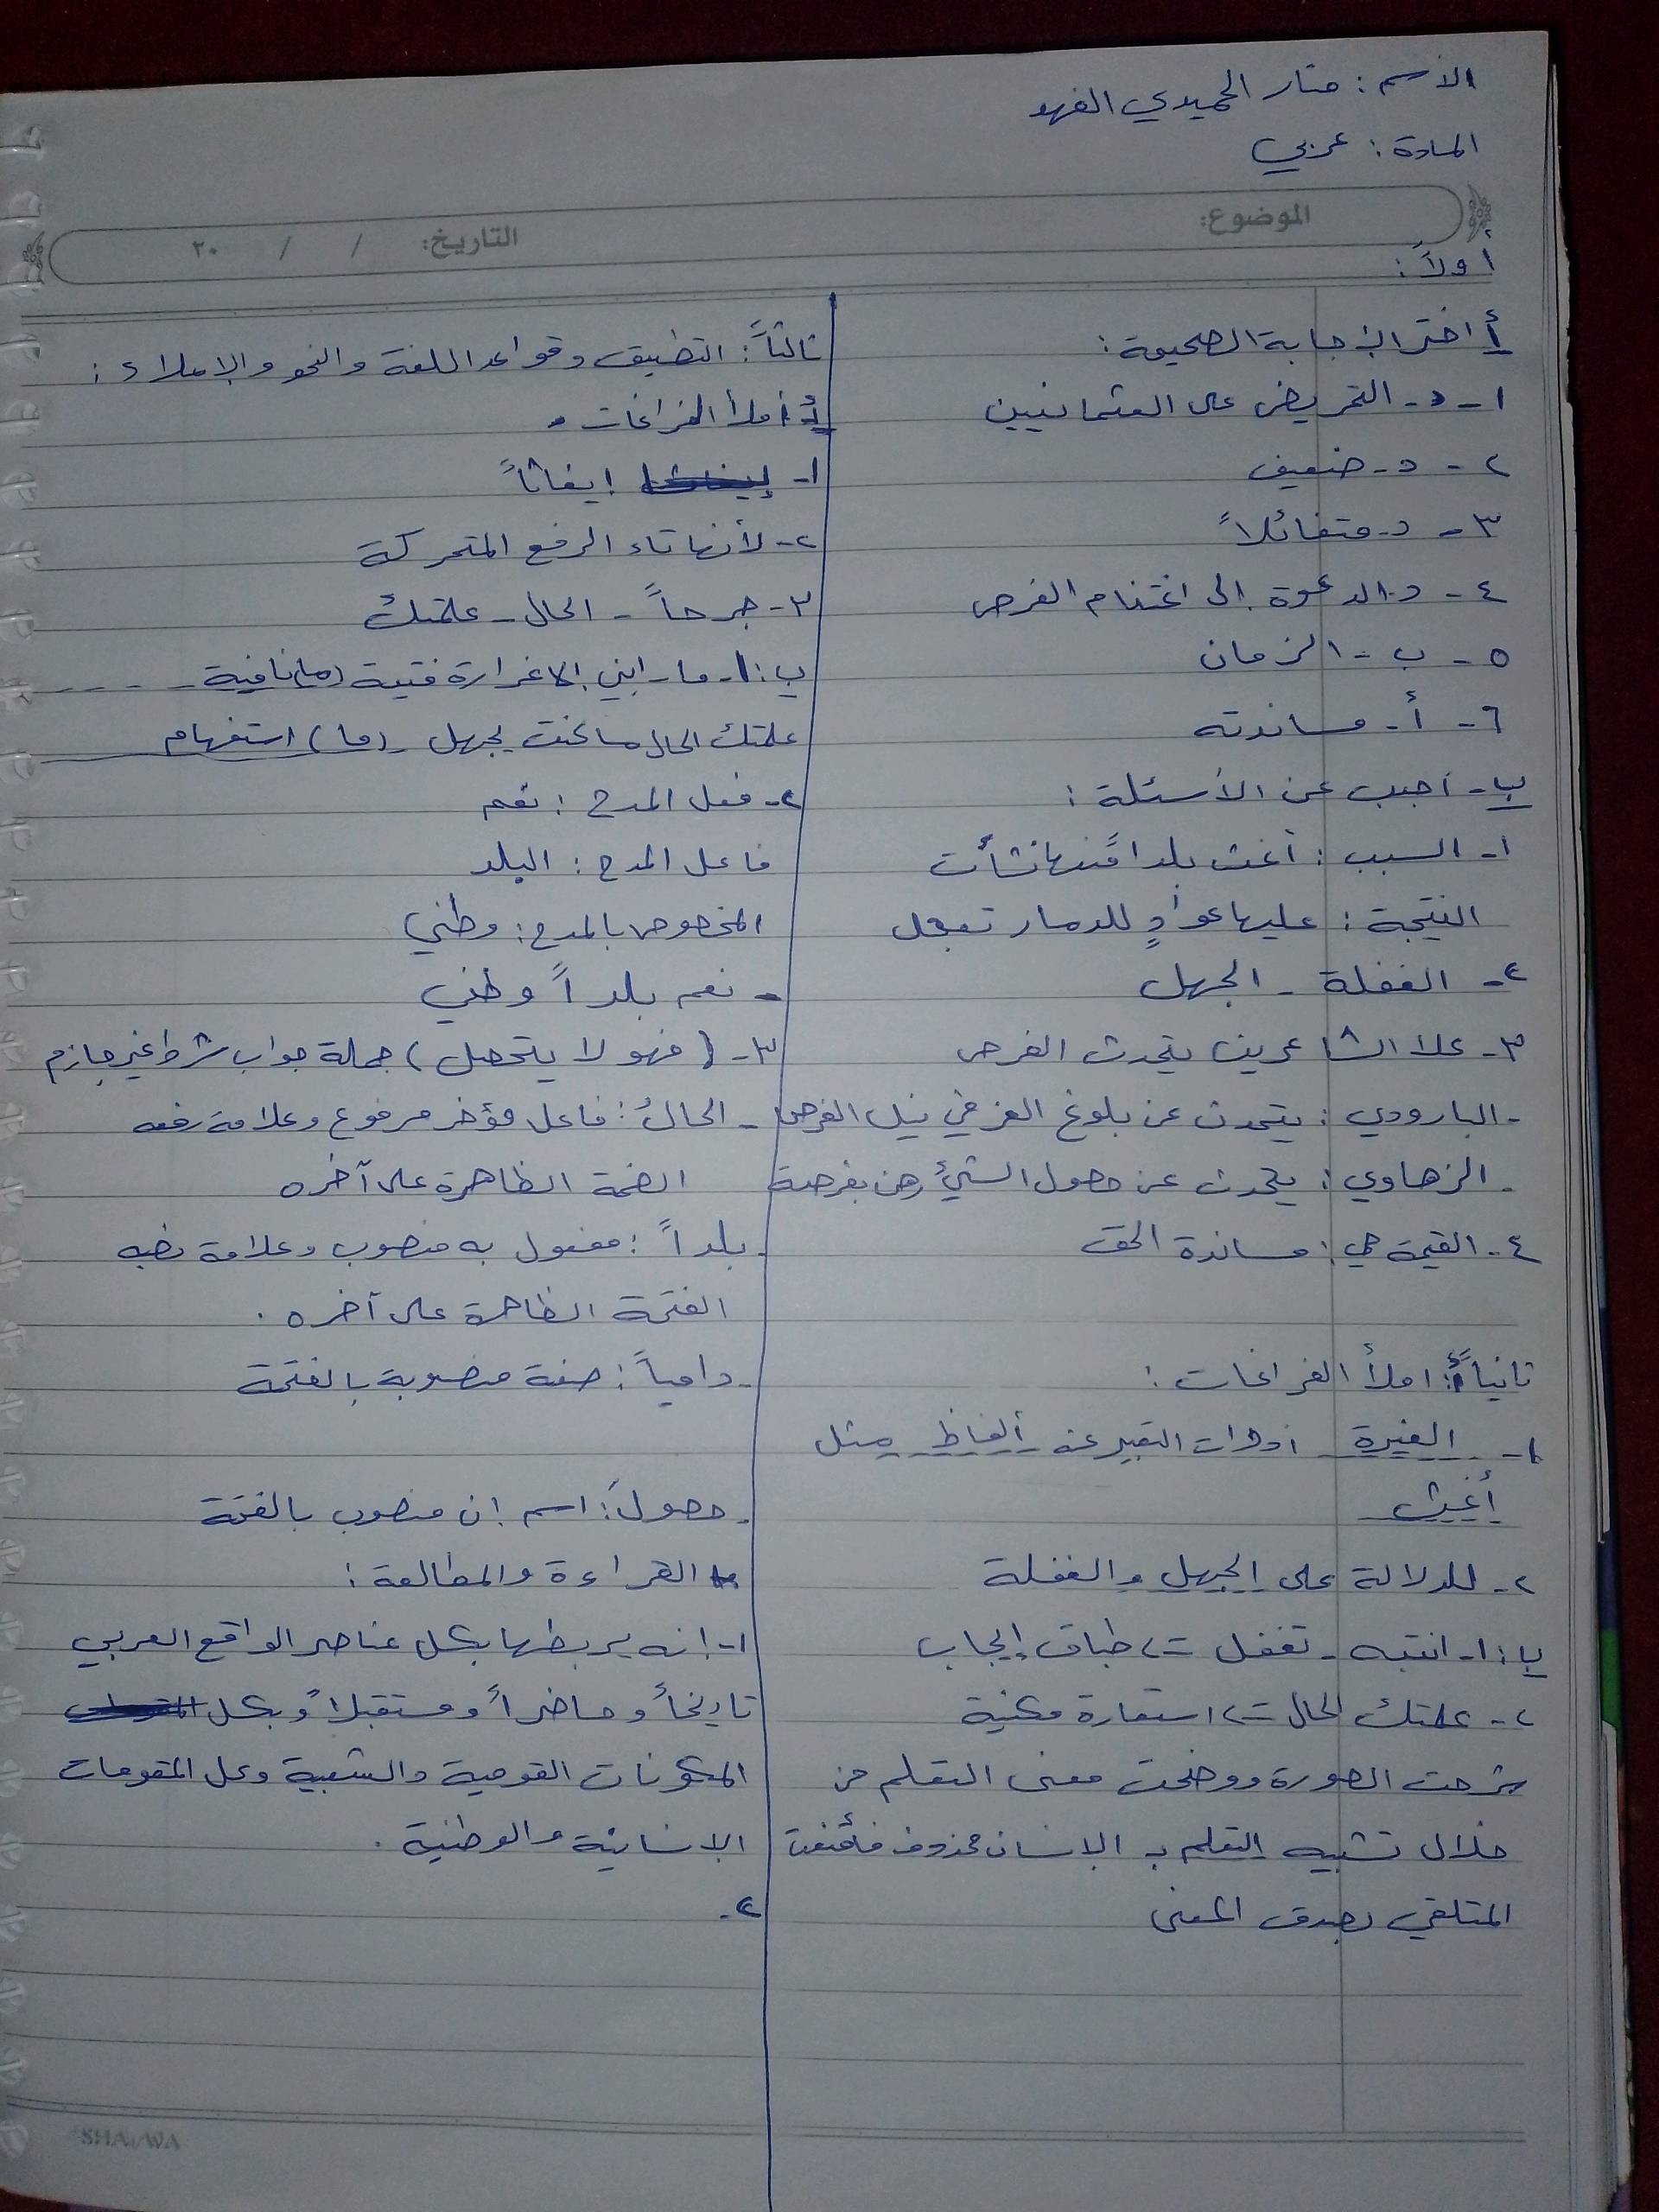 الاسم : منار الحميدي الفهد
المادة : عربي
الموضوع:
التاريخ: / / ٢٠
أولاً :
أ اختر الإجابة الصحيحة :
١- د- التحريض على العثمانيين
٢- د- ضعيف
٣- د- متفائلاً
٤- د- الدعوة إلى اغتنام الفرص
٥- ب- الزمان
٦- أ- مساندته
ب- أجب عن الأسئلة :
١- السبب : أغث بلداً منها نشأت
النتيجة : عليها عوادٍ للدمار تعجل
٢- الغفلة - الجهل
٣- كلا الشاعرين يتحدث الفرص
- البارودي : يتحدث عن بلوغ العز في نيل الفرص
- الزهاوي : يتحدث عن حصول الشيء رهن بفرصة
٤- القيمة هي : مساندة الحق
ثانياً : أ : املأ الفراغات :
١- الغيرة أدوات التعبير عنه ألفاظ مثل
أغث
٢- للدلالة على الجهل والغفلة
ب : ١- انتبه - تغفل ← طباق إيجاب
٢- علمتك الحال ← استعارة مكنية
شرحت الصورة ووضحت معنى التعلم من
خلال تشبيه التعلم بـ الإنسان محذوف فأقنعت
المتلقي بصدق المعنى
ثالثاً : التطبيق وقواعد اللغة والنحو والإملاء :
أ : املأ الفراغات .
١- إيفاثاً
٢- لأنها تاء الرفع المتحركة
٣- جرحاً - الحال - علمتك
ب : ١- ما رابني إلا غرارة فتية (ما) نافية
علمتك الحال ما كنت تجهل (ما) استفهام
٢- فعل المدح : نعم
فاعل المدح : البلد
المخصوص بالمدح : وطني
- نعم بلداً وطني
٣- (فهو لا يتحصل) جملة جواب شرط غير جازم
- الحالُ : فاعل مؤخر مرفوع وعلامة رفعه
الضمة الظاهرة على آخره
- بلداً : مفعول به منصوب وعلامة نصبه
الفتحة الظاهرة على آخره .
- دامياً : صفة منصوبة بالفتحة
- حصولَ : اسم إن منصوب بالفتحة
القراءة والمطالعة :
١- إنه يربطها بكل عناصر الواقع العربي
تاريخاً وحاضراً ومستقبلاً وبكل
المكونات القومية والشعبية وكل المقومات
الإنسانية والوطنية .
٢-
SHAIWA